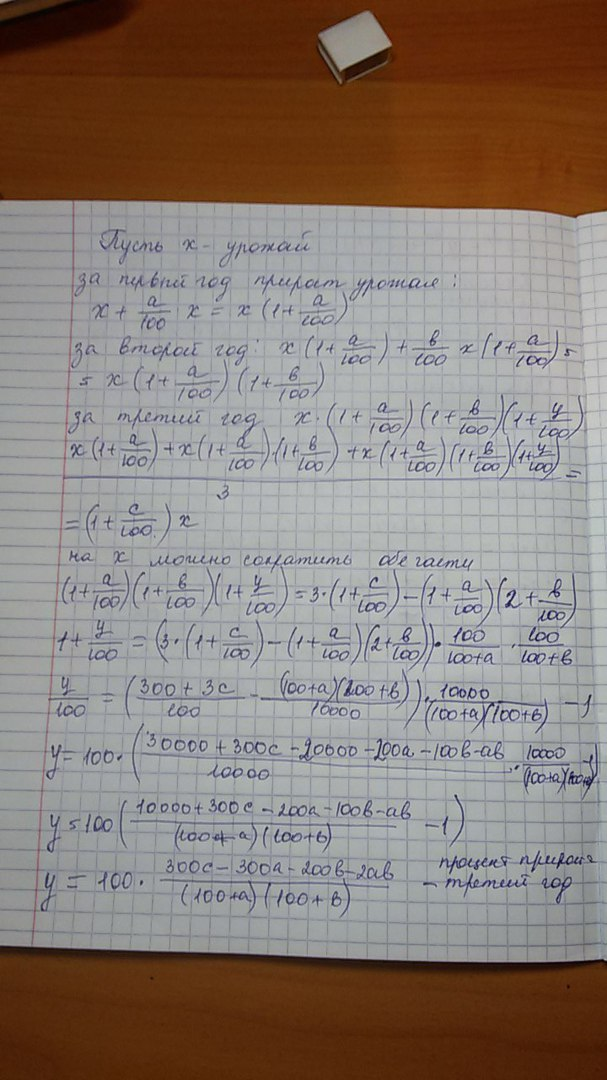 Пусть x - урожай
за первый год прирост урожая:
x + a/100 x = x (1 + a/100)
за второй год: x (1 + a/100) + в/100 x (1 + a/100) =
= x (1 + a/100) (1 + в/100)
за третий год x · (1 + a/100) (1 + в/100) (1 + y/100)
(x (1 + a/100) + x (1 + a/100) · (1 + в/100) + x (1 + a/100) (1 + в/100) (1 + y/100)) / 3 =
= (1 + c/100) x
на x можно сократить обе части
(1 + a/100) (1 + в/100) (1 + y/100) = 3 · (1 + c/100) - (1 + a/100) (2 + в/100)
1 + y/100 = (3 · (1 + c/100) - (1 + a/100) (2 + в/100)) · 100/(100 + a) · 100/(100 + в)
y/100 = ((300 + 3c)/100 - (100 + a)(200 + в)/10000) · 10000/((100 + a)(100 + в)) - 1
y = 100 · ((30000 + 300c - 20000 - 200a - 100в - aв)/10000 · 10000/((100 + a)(100 + в)) - 1)
y = 100 ((10000 + 300c - 200a - 100в - aв)/((100 + a)(100 + в)) - 1)
y = 100 · (300c - 300a - 200в - 2aв)/((100 + a)(100 + в)) - процент прироста третий год